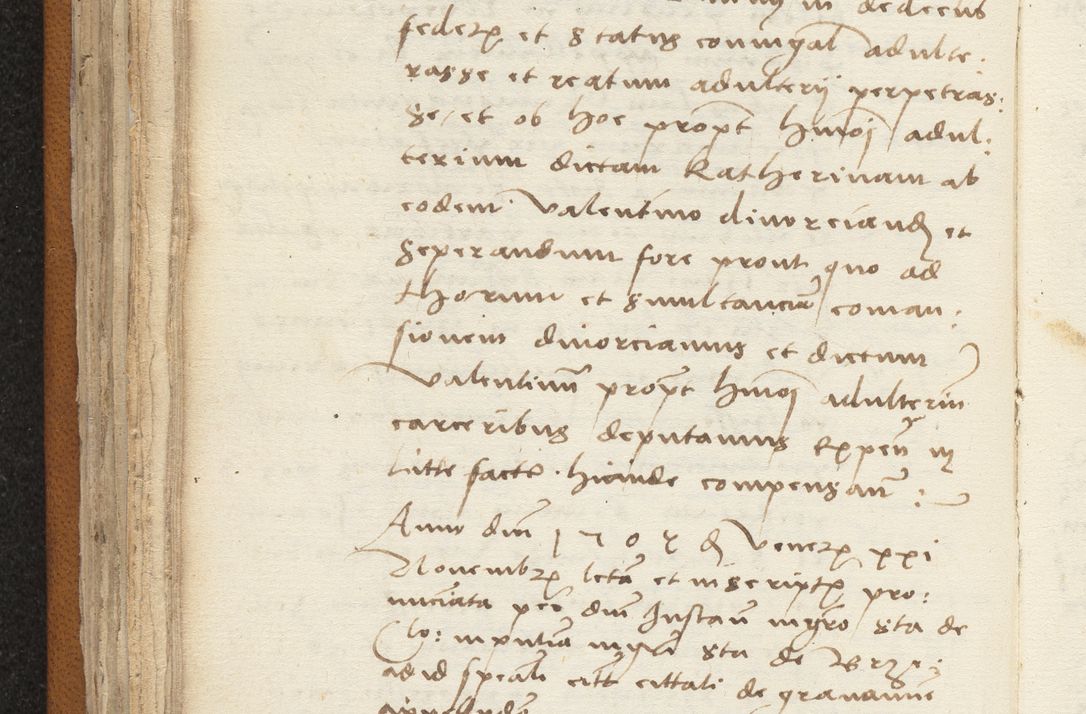 in dedecus
federis et status coniugal adulte:
rasse et reatum adulterij perpetras:
se/ et ob hoc propt hmoi adul:
terium dictam Katherinam ab
eodem Valentino divorciand et
seperandum fore prout quo ad
thorum et simultaneam coman:
sionem divorciamus et dictum
Valentinum propt hmoi adulterium
carceribus deputamus expen in
litte facte hicinde compensan:
Anno dni 1505 d Veneris xxi
Novembris lecta et in scriptis pro:
nunciata per dnm Instan mgro Sta de
Clo: in pntia mgri Sta de Brze:
ad id speali citt cittati de gravamine